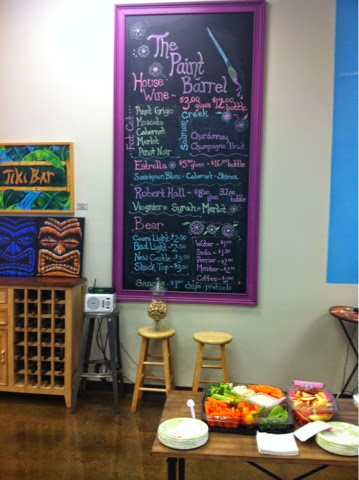 The
Paint
Barrel
House
Wine ~ $3.00 glass $12.00 bottle
Fat Cat:
Pinot Grigio
Moscato
Cabernet
Merlot
Pinot Noir
Salmon Creek
Chardonnay
Champagne Brut
Estrella ~ $5.00 glass ~ bottle
Sauvignon Blanc - Cabernet - Shiraz
Robert Hall - glass bottle
Viognier Syrah Merlot
Beer
Coors Light $2.50
Bud Light $2.50
New Castle
Shock Top - $3.50
Water -
Soda -
Perrier -
Monster -
Coffee -
chips - pretzels
Tiki Bar